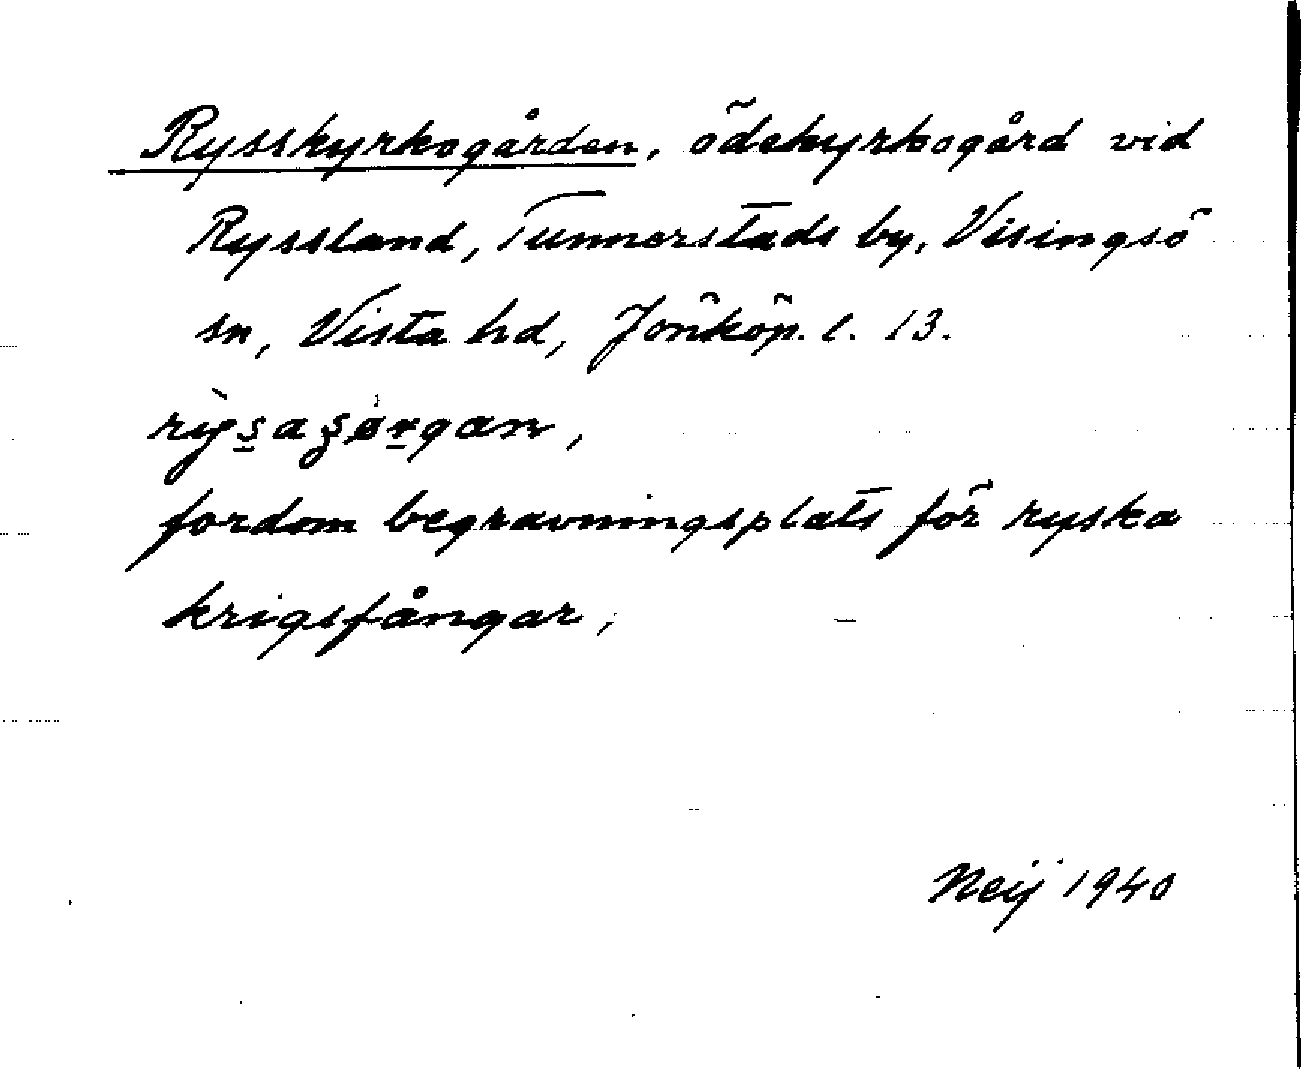 Rysskyrkogården, ödekyrkogård vid
Ryssland, Tunnerstads by, Visingsö
sn, Vista hd, Jönköp. l. 13.
fordom begravningsplats för ryska
krigsfångar,
Neij 1940